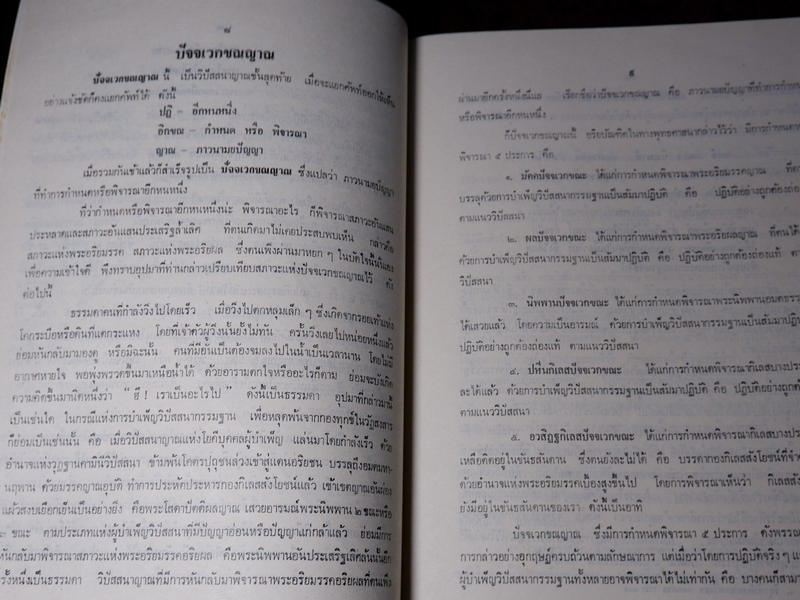 ๘
ปัจจเวกขณญาณ
ปัจจเวกขณญาณ นี้ เป็นวิปัสสนาญาณขั้นสุดท้าย เมื่อจะแยกศัพท์ออกให้เห็น
อย่างแจ้งชัดก็คงแยกศัพท์ได้ ดังนี้
ปฏิ – อีกหนหนึ่ง
อิกขณ – กำหนด หรือ พิจารณา
ญาณ – ภาวนามยปัญญา
เมื่อรวมกันเข้าแล้วก็สำเร็จรูปเป็น ปัจจเวกขณญาณ ซึ่งแปลว่า ภาวนามยปัญญา
ที่ทำการกำหนดหรือพิจารณาอีกหนหนึ่ง
ที่ว่ากำหนดหรือพิจารณาอีกหนหนึ่งน่ะ พิจารณาอะไร ก็พิจารณาสภาวะอันแสน
ประหลาดและสภาวะอันแสนประเสริฐล้ำเลิศ ที่ตนเกิดมาไม่เคยประสบพบเห็น กล่าวคือ
สภาวะแห่งพระอริยมรรค สภาวะแห่งพระอริยผล ซึ่งตนเพิ่งผ่านมาหยก ๆ ในบัดใจนั้นนั่นเอง
เพื่อความเข้าใจดี พึงทราบอุปมาที่ท่านกล่าวเปรียบเทียบสภาวะแห่งปัจจเวกขณญาณไว้ ดัง
ต่อไปนี้
ธรรมดาคนที่กำลังวิ่งไปโดยเร็ว เมื่อวิ่งไปตกหลุมเล็ก ๆ ซึ่งเกิดจากรอยเท้าแห่ง
โคกระบือหรือดินที่แตกระแหง โดยที่เจ้าตัวผู้วิ่งนั้นยั้งไม่ทัน ครั้นวิ่งเลยไปหน่อยหนึ่งแล้ว
ย่อมหันกลับมามองดู หรือมิฉะนั้น คนที่มีอันเป็นต้องจมลงไปในน้ำเป็นเวลานาน โดยไม่มี
อากาศหายใจ พอพุ่งพรวดขึ้นมาเหนือน้ำได้ ด้วยอารามตกใจหรืออะไรก็ตาม ย่อมจะบังเกิด
ความคิดขึ้นมานิดหนึ่งว่า “ ฮึ ! เราเป็นอะไรไป ” ดังนี้เป็นธรรมดา อุปมาที่กล่าวมานี้
เป็นเช่นใด ในกรณีแห่งการบำเพ็ญวิปัสสนากรรมฐาน เพื่อหลุดพ้นจากกองทุกข์ในวัฏสงสาร
ก็ย่อมเป็นเช่นนั้น คือ เมื่อวิปัสสนาญาณแห่งโยคีบุคคลผู้บำเพ็ญ แล่นมาโดยกำลังเร็ว ด้วย
อำนาจแห่งวุฏฐานคามินีวิปัสสนา ข้ามพ้นโคตรปุถุชนล่วงเข้าสู่แดนอริยชน บรรลุถึงอมตมหา-
นฤพาน ด้วยมรรคญาณอุบัติ ทำการประหัตประหารกองกิเลสสังโยชน์แล้ว เข้าเขตญาณอันผ่อง
แผ้วสงบเยือกเย็นเป็นอย่างยิ่ง คือพระโสดาปัตติผลญาณ เสวยอารมณ์พระนิพพาน ๒ ขณะหรือ
๓ ขณะ ตามประเภทแห่งผู้บำเพ็ญวิปัสสนาที่มีปัญญาอ่อนหรือปัญญาแก่กล้าแล้ว ย่อมมีการ
หันกลับมาพิจารณาสภาวะที่พระอริยมรรคอริยผล คือพระนิพพานอันประเสริฐเลิศล้นนั้นอีก
ครั้งหนึ่งเป็นธรรมดา วิปัสสนาญาณที่มีการหันกลับมาพิจารณาพระอริยมรรคอริยผลที่ตนเพิ่ง
๕
ผ่านมาอีกครั้งหนึ่งนี่แล เรียกชื่อว่าปัจจเวกขณญาณ คือ ภาวนามยปัญญาที่ทำการกำหนด
หรือพิจารณาอีกหนหนึ่ง
ก็ปัจจเวกขณญาณนี้ อริยบัณฑิตในทางพุทธศาสนากล่าวไว้ว่า มีการกำหนด
พิจารณา ๕ ประการ คือ
๑. มัคคปัจจเวกขณะ ได้แก่การกำหนดพิจารณาพระอริยมรรคญาณ ที่ตน
บรรลุด้วยการบำเพ็ญวิปัสสนากรรมฐานเป็นสัมมาปฏิบัติ คือ ปฏิบัติอย่างถูกต้องถ่อง
ตามแนววิปัสสนา
๒. ผลปัจจเวกขณะ ได้แก่การกำหนดพิจารณาพระอริยผลญาณ ที่ตนได้
ด้วยการบำเพ็ญวิปัสสนากรรมฐานเป็นสัมมาปฏิบัติ คือ ปฏิบัติอย่างถูกต้องถ่องแท้ ตาม
วิปัสสนา
๓. นิพพานปัจจเวกขณะ ได้แก่การกำหนดพิจารณาพระนิพพานอมตธรรม
ได้เสวยแล้ว โดยความเป็นอารมณ์ ด้วยการบำเพ็ญวิปัสสนากรรมฐานเป็นสัมมาปฏิบัติ
ปฏิบัติอย่างถูกต้องถ่องแท้ ตามแนววิปัสสนา
๔. ปหีนกิเลสปัจจเวกขณะ ได้แก่การกำหนดพิจารณากิเลสบางประ
ละได้แล้ว ด้วยการบำเพ็ญวิปัสสนากรรมฐานเป็นสัมมาปฏิบัติ คือ ปฏิบัติอย่างถูกต้อง
ตามแนววิปัสสนา
๕. อวสิฏฐกิเลสปัจจเวกขณะ ได้แก่การกำหนดพิจารณากิเลสบางประ
เหลือติดอยู่ในขันธสันดาน ซึ่งตนยังละไม่ได้ คือ บรรดากองกิเลสสังโยชน์ที่
ด้วยอำนาจแห่งพระอริยมรรคเบื้องสูงขึ้นไป โดยการพิจารณาเห็นว่า กิเลสสัง
ยังมีอยู่ในขันธสันดานของเรา ดังนี้เป็นอาทิ
ปัจจเวกขณญาณ ซึ่งมีการกำหนดพิจารณา ๕ ประการ ดังพรรณ
การกล่าวอย่างอุกฤษฏ์ครบถ้วนตามลักษณาการ แต่เมื่อว่าโดยการปฏิบัติจริง ๆ แ
ผู้บำเพ็ญวิปัสสนากรรมฐานทั้งหลายอาจพิจารณาได้ไม่เท่ากัน คือ บางคนก็สามา